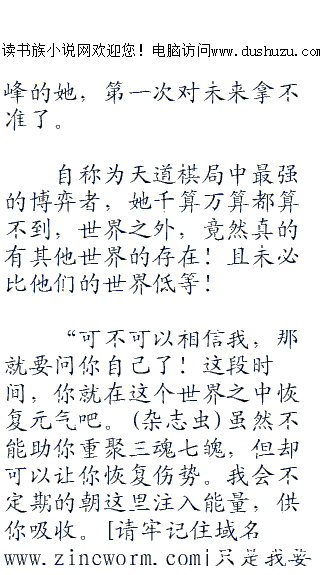 读书族小说网欢迎您！电脑访问www.dushuzu.com
峰的她，第一次对未来拿不
准了。
自称为天道棋局中最强
的博弈者，她千算万算都算
不到，世界之外，竟然真的
有其他世界的存在！且未必
比他们的世界低等！
“可不可以相信我，那
就要问你自己了！这段时
间，你就在这个世界之中恢
复元气吧。(杂志虫)虽然不
能助你重聚三魂七魄，但却
可以让你恢复伤势。我会不
定期的朝这里注入能量，供
你吸收。[请牢记住域名
www.zincworm.com]只是我要